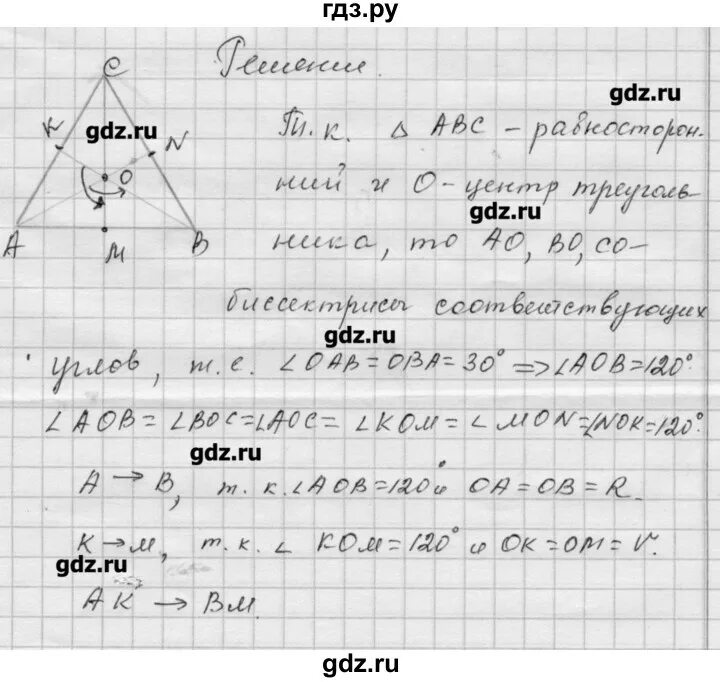 гдз.ру
C
Решение.
gdz.ru
K
gdz.ru
N
Т.к. △ ABC – равносторон-
O
ний и O-центр треуголь-
gdz.ru
A
M
B
ника, то AO, BO, CO-
биссектрисы соответствующих
gdz.ru
углов, т.е. ∠OAB=OBA=30° ⇒ ∠AOB=120°.
∠AOB=∠BOC=∠AOC=∠KOM=∠MON=∠NOK=120°.
gdz.ru
A → B, т.к. ∠AOB=120° и OA=OB=R.
K→M, т.к. ∠ KOM=120° и OK=OM=r.
gdz.ru
AK → BM.
gdz.ru